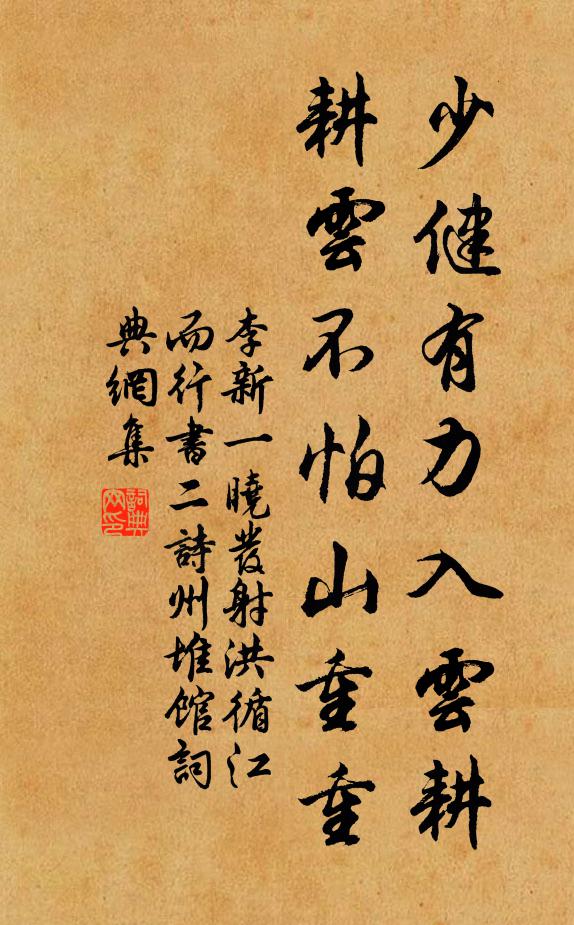 少健有力入雲耕
耕雲不怕山重重
李新一曉發射洪循江
而行書二詩州堆館詞
典網集
詞典
网印